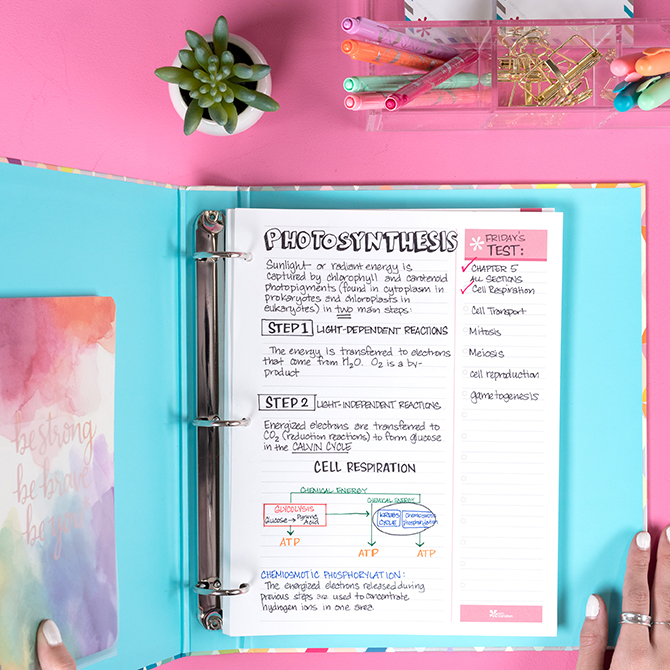 PHOTOSYNTHESIS
Sunlight or radiant energy is
captured by chlorophyll and carotenoid
photopigments (found in cytoplasm in
prokaryotes and chloroplasts in
eukaryotes) in two main steps:
STEP 1 LIGHT-DEPENDENT REACTIONS
The energy is transferred to electrons
that come from H₂O. O₂ is a by-
product
STEP 2 LIGHT-INDEPENDENT REACTIONS
Energized electrons are transferred to
CO₂ (reduction reactions) to form glucose
in the CALVIN CYCLE
CELL RESPIRATION
CHEMICAL ENERGY
CHEMICAL ENERGY
GLYCOLYSIS
Glucose → Pyruvic Acid
KREBS CYCLE
Chemiosmotic phosphorylation
ATP
ATP
ATP
CHEMIOSMOTIC PHOSPHORYLATION:
The energized electrons released during
previous steps are used to concentrate
hydrogen ions in one area
FRIDAY'S
TEST:
CHAPTER 5
ALL SECTIONS
Cell Respiration
Cell Transport
Mitosis
Meiosis
cell reproduction
gametogenesis
be strong
be brave
be you